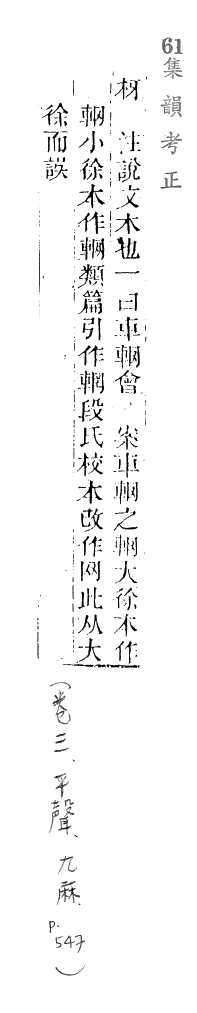 61 集韻考正
枒 注說文木也一曰車輞會 案車輞之輞大徐本作
輞小徐本作輞類篇引作輞段氏校本改作网此从大
徐而誤
(卷三、平聲、九麻、
p.
547)